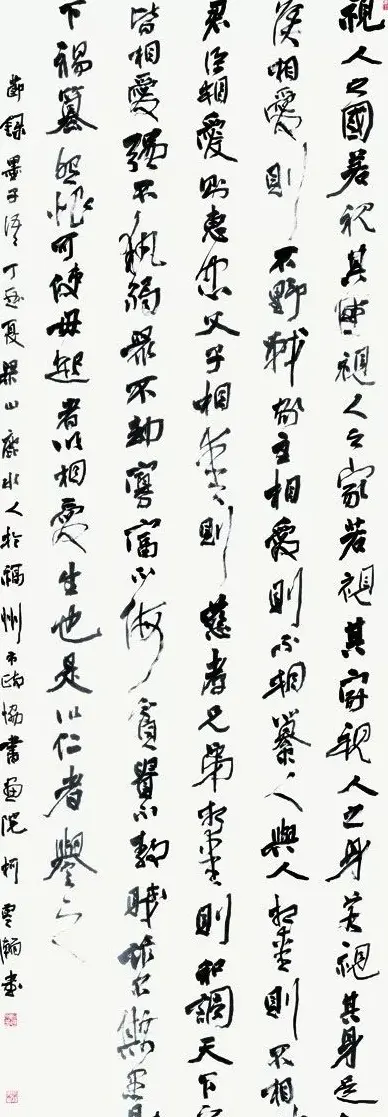 視人之國若視其國視人之家若視其家視人之身若視其身是
侯相愛則不野戰家主相愛則不相篡人與人相愛則不相
君臣相愛則惠忠父子相愛則慈孝兄弟相愛則和調天下
皆相愛強不執弱眾不劫寡富不侮貧貴不敖賤詐不欺愚
下禍篡怨恨可使毋起者以相愛生也是以仁者譽之
節錄墨子語丁亥夏梁山鹿水人於福州市政協書畫院柯雲瀚書